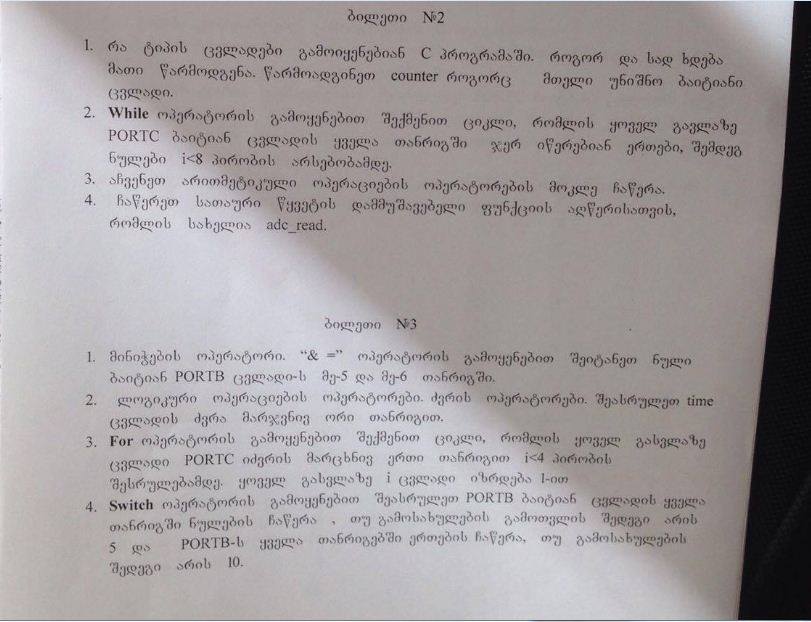 ბილეთი №2
1. რა ტიპის ცვლადები გამოიყენებიან C პროგრამაში. როგორ და სად ხდება
მათი წარმოდგენა. წარმოადგინეთ counter როგორც მთელი უნიშნო ბაიტიანი
ცვლადი.
2. While ოპერატორის გამოყენებით შექმენით ციკლი, რომლის ყოველ გავლაზე
PORTC ბაიტიან ცვლადის ყველა თანრიგში ჯერ იწერებიან ერთები, შემდეგ
ნულები i<8 პირობის არსებობამდე.
3. აჩვენეთ არითმეტიკული ოპერაციების ოპერატორების მოკლე ჩაწერა.
4. ჩაწერეთ სათაური წყვეტის დამმუშავებელი ფუნქციის აღწერისათვის,
რომლის სახელია adc_read.
ბილეთი №3
1. მინიჭების ოპერატორი. “& =” ოპერატორის გამოყენებით შეიტანეთ ნული
ბაიტიან PORTB ცვლადი-ს მე-5 და მე-6 თანრიგში.
2. ლოგიკური ოპერაციების ოპერატორები. ძვრის ოპერატორები. შეასრულეთ time
ცვლადის ძვრა მარჯვნივ ორი თანრიგით.
3. For ოპერატორის გამოყენებით შექმენით ციკლი, რომლის ყოველ გასვლაზე
ცვლადი PORTC იძვრის მარცხნივ ერთი თანრიგით i<4 პირობის
შესრულებამდე. ყოველ გასვლაზე i ცვლადი იზრდება 1-ით
4. Switch ოპერატორის გამოყენებით შეასრულეთ PORTB ბაიტიან ცვლადის ყველა
თანრიგში ნულების ჩაწერა , თუ გამოსახულების გამოთვლის შედეგი არის
5 და PORTB-ს ყველა თანრიგებში ერთების ჩაწერა, თუ გამოსახულების
შედეგი არის 10.